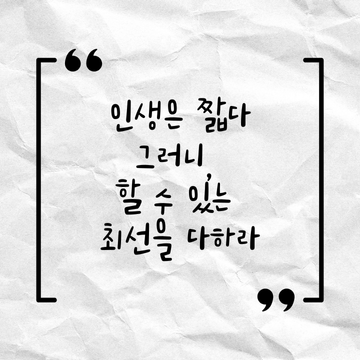 인생은 짧다
그러니
할 수 있는
최선을 다하라